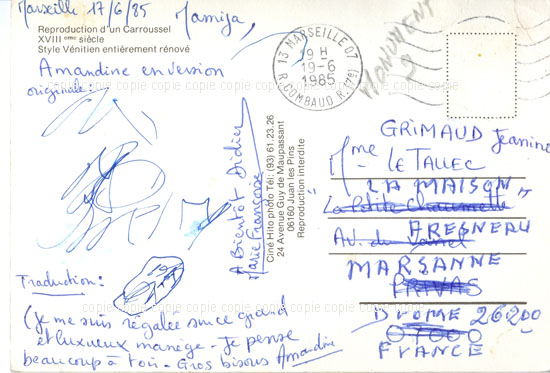 Marseille 17/6/85
Mamija,
Reproduction d'un Carroussel
XVIII ème siècle
Style Vénitien entièrement rénové
Amandine en version
originale:
copie copie copie copie copie copie copie copie copie copie copie copie
Traduction:
(Je me suis régalée sur ce grand
et luxueux manège. Je pense
beaucoup à toi - Gros bisous Amandine
A Bientôt Didier
Marie Françoise
Ciné Hito photo Tél. (93) 61.23.26
24 Avenue Guy de Maupassant
06160 Juan les Pins
Reproduction interdite
13 MARSEILLE 07
19 H
19-6
1985
R. GOMBAUD R. (7e)
MONUMENT
GRIMAUD Jeanine
Mme LE TALLEC
"LA MAISON"
La Petite Chaumette
FRESNEAU
Av. du
MARSANNE
PRIVAS
DROME 26200
07000
FRANCE